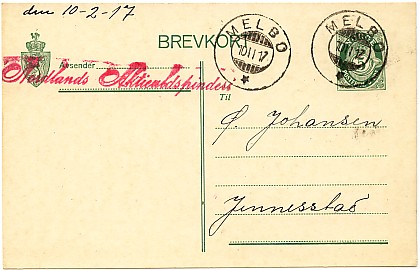 den 10-2-17
BREVKORT
MELBO
10 II 17
MELBO
Afsender
Nordlands Aktiendspinderi
Til
Ø. Johansen
Jennesstad